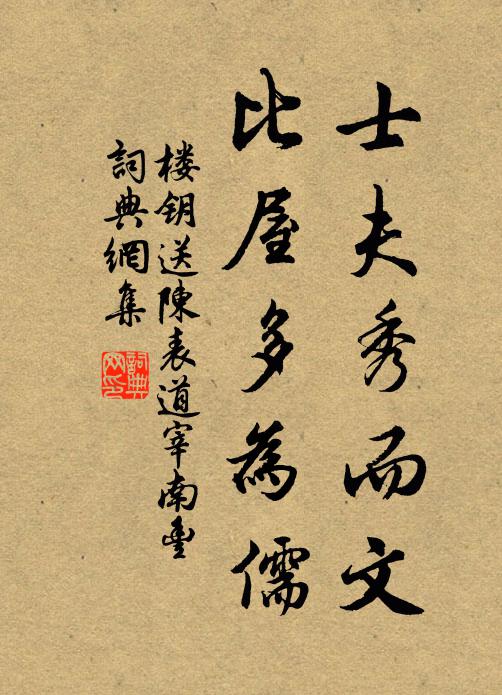 士夫秀而文
比屋多為儒
楼钥送陳表道宰南豐
詞典網集
詞典網印